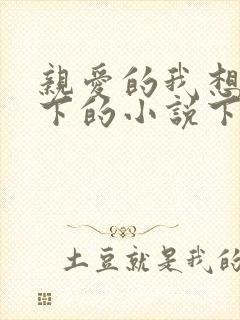 親愛的我想
下的小説下
土豆就是我的